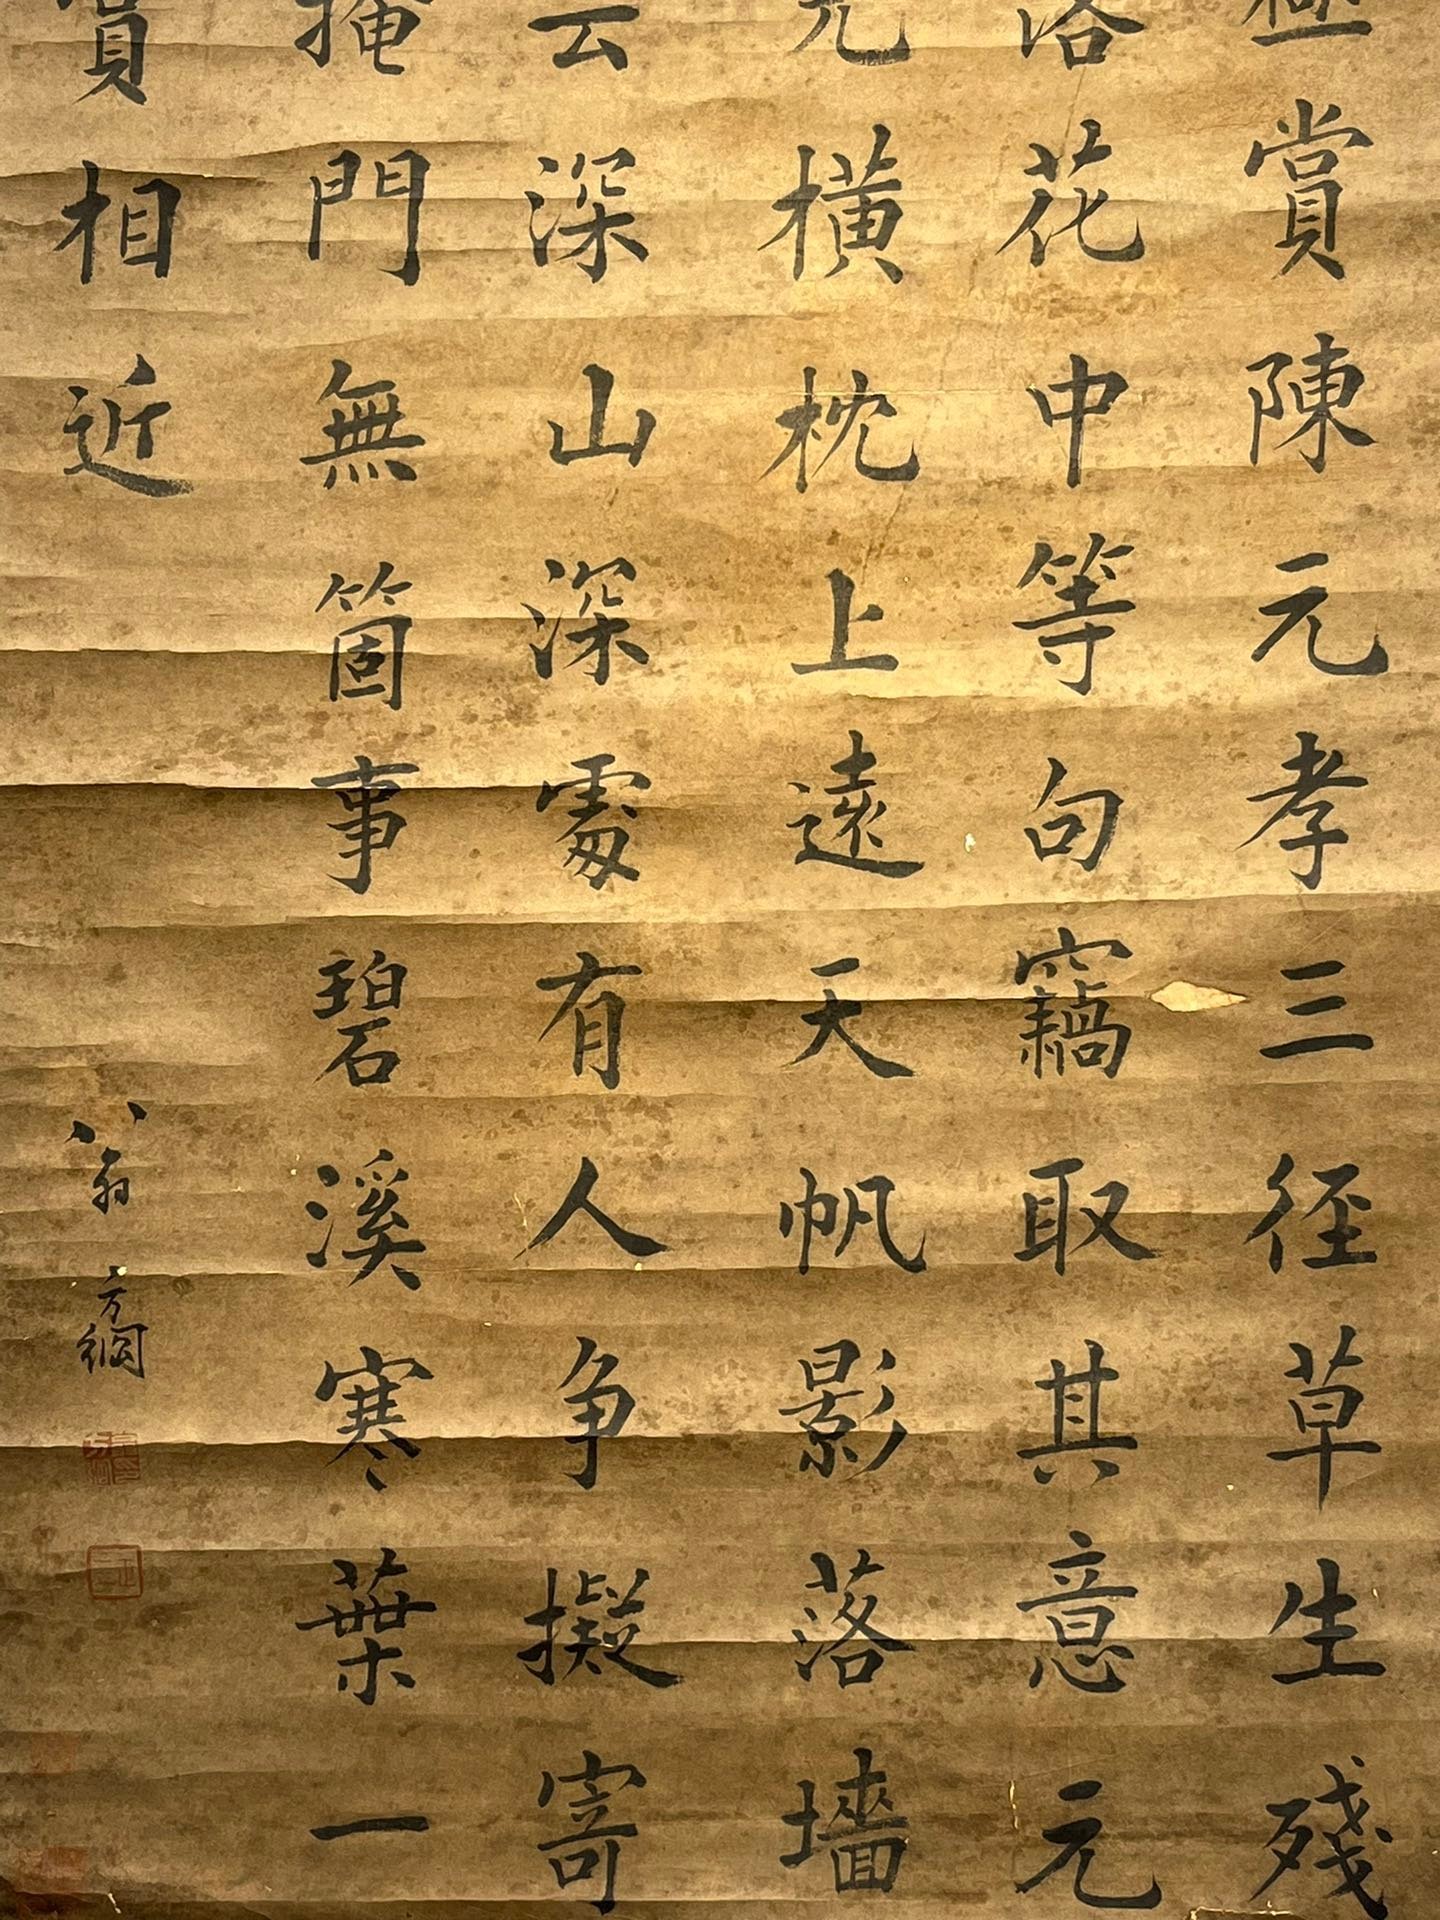 極賞陳元孝三径草生殘
落花中等句竊取其意元
橫枕上遠天帆影落墻
云深山深處有人争擬寄
掩門無箇事碧溪寒葉一
相近
翁方綱